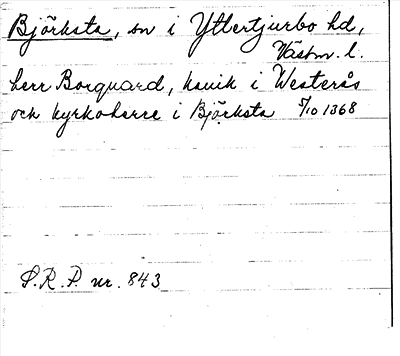 Björksta, sn i Yttertjurbo hd,
Västm. l.
herr Borquard, kanik i Westerås
och kyrkoherre i Björksta 5/10 1368
S.R.P. nr. 843